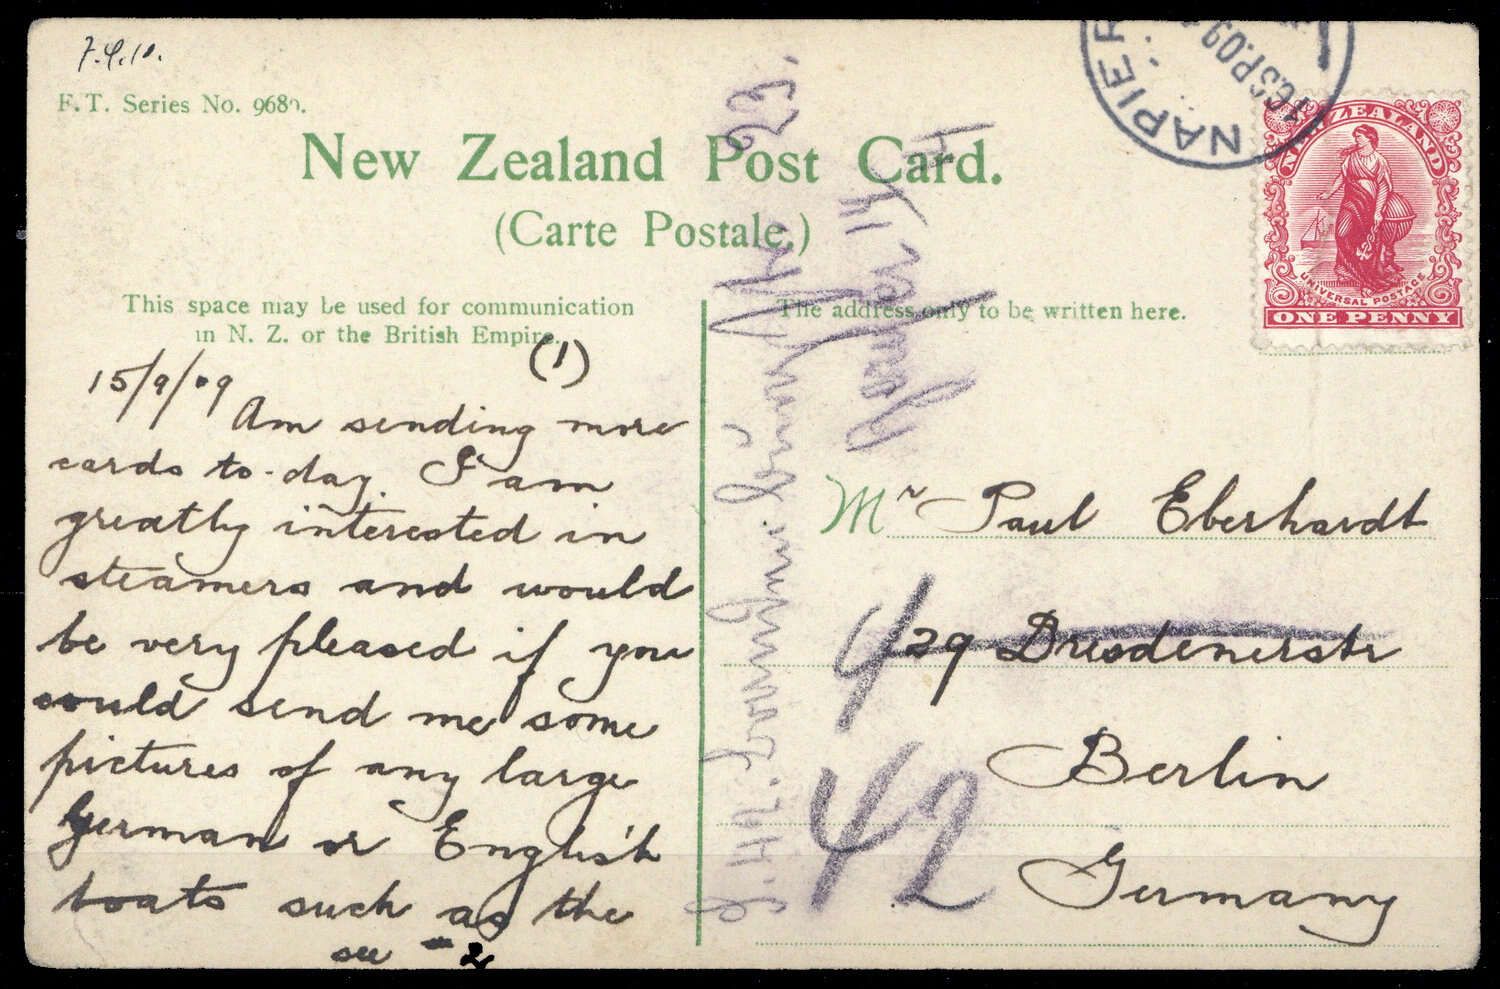 7.4.10.
F.T. Series No. 9680.
New Zealand Post Card.
(Carte Postale.)
This space may be used for communication
in N. Z. or the British Empire.
The address only to be written here.
NAPIER
SP.09
NEW ZEALAND
UNIVERSAL POSTAGE
ONE PENNY
(1)
15/9/09 Am sending more
cards to-day. I am
greatly interested in
steamers and would
be very pleased if you
could send me some
pictures of any large
German or English
boats such as the
see 2
Mr Paul Eberhardt
29 Dresdenerstr
Berlin
Germany
42